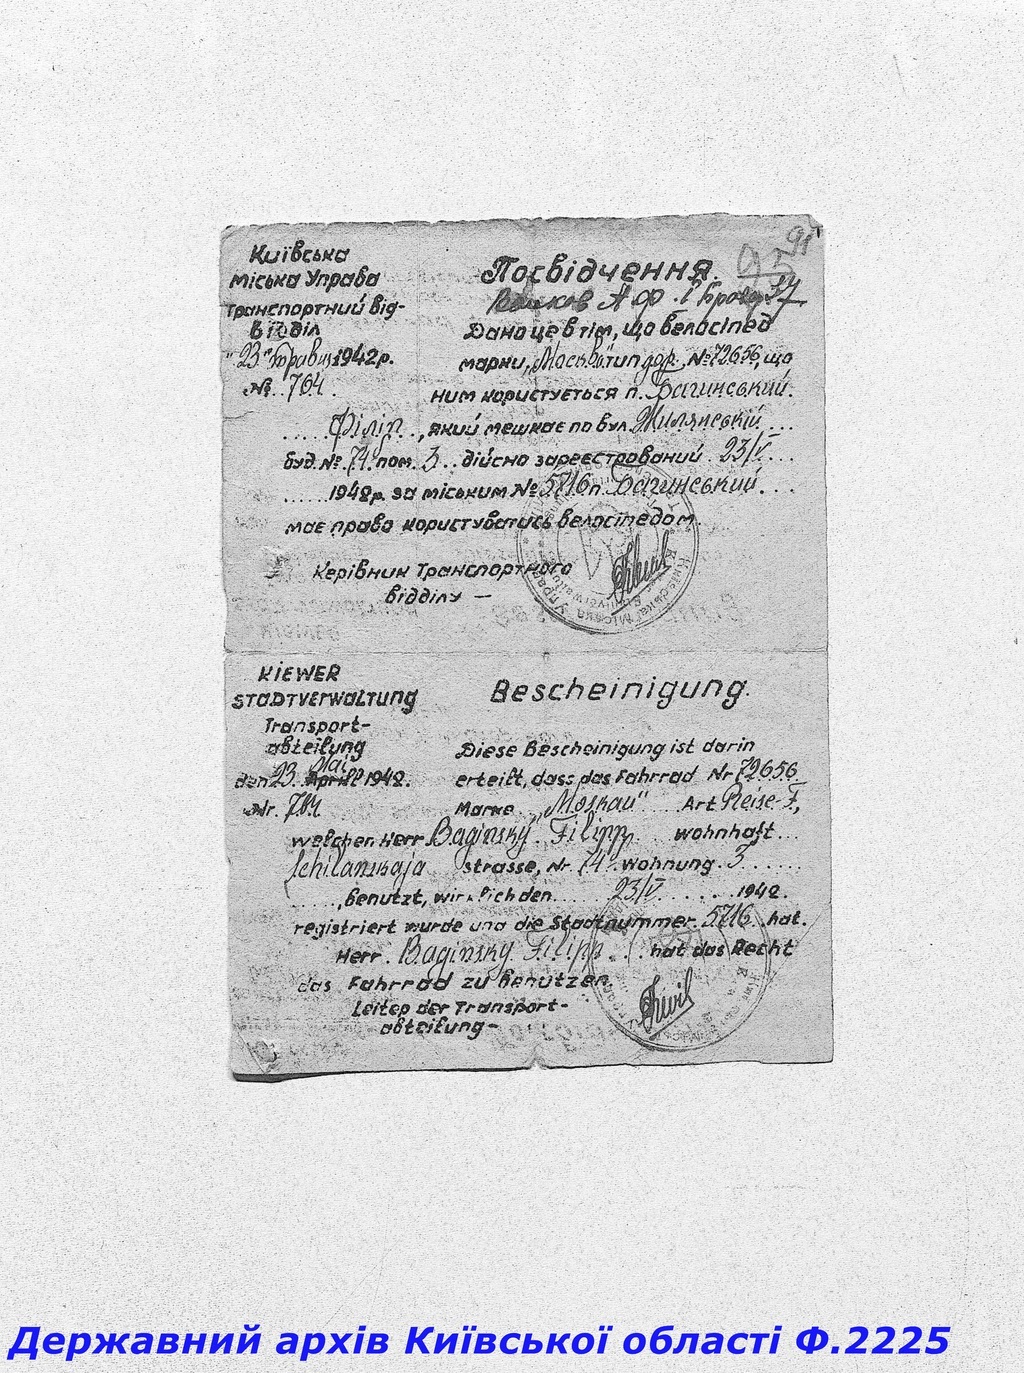 91
Київська
міська Управа
Транспортний від-
відділ
"23" Травня 1942р.
№ 764.
Посвідчення.
37
Дано це в тім, що велосіпед
марки "Москва" тип дор., №72656, що
ним користується п. Багинський.
Філіп, який мешкає по вул. Жилянській
буд. № 74 пом. 3 дійсно зареєстрований 23/V
1942р. за міським № 5716 п. Багинський
має право користуватись велосіпедом.
Керівник Транспортного
відділу —
KIEWER
STADTVERWALTUNG
Transport-
abteilung
Mai
den 23. April 1942.
Nr. 764
Bescheinigung.
Diese Bescheinigung ist darin
erteilt, dass das Fahrrad Nr 72656
Marke "Moskau" Art Reise-F,
welchen Herr Baginsky Filipp wohnhaft
Schilanskaja strasse, Nr 74 Wohnung 3
benutzt, wirklich den 23/V 1942.
registriert wurde und die Stadtnummer 5716 hat.
Herr Baginsky Filipp hat das Recht
das Fahrrad zu benützen.
Leiter der Transport-
abteilung-
Державний архів Київської області Ф.2225